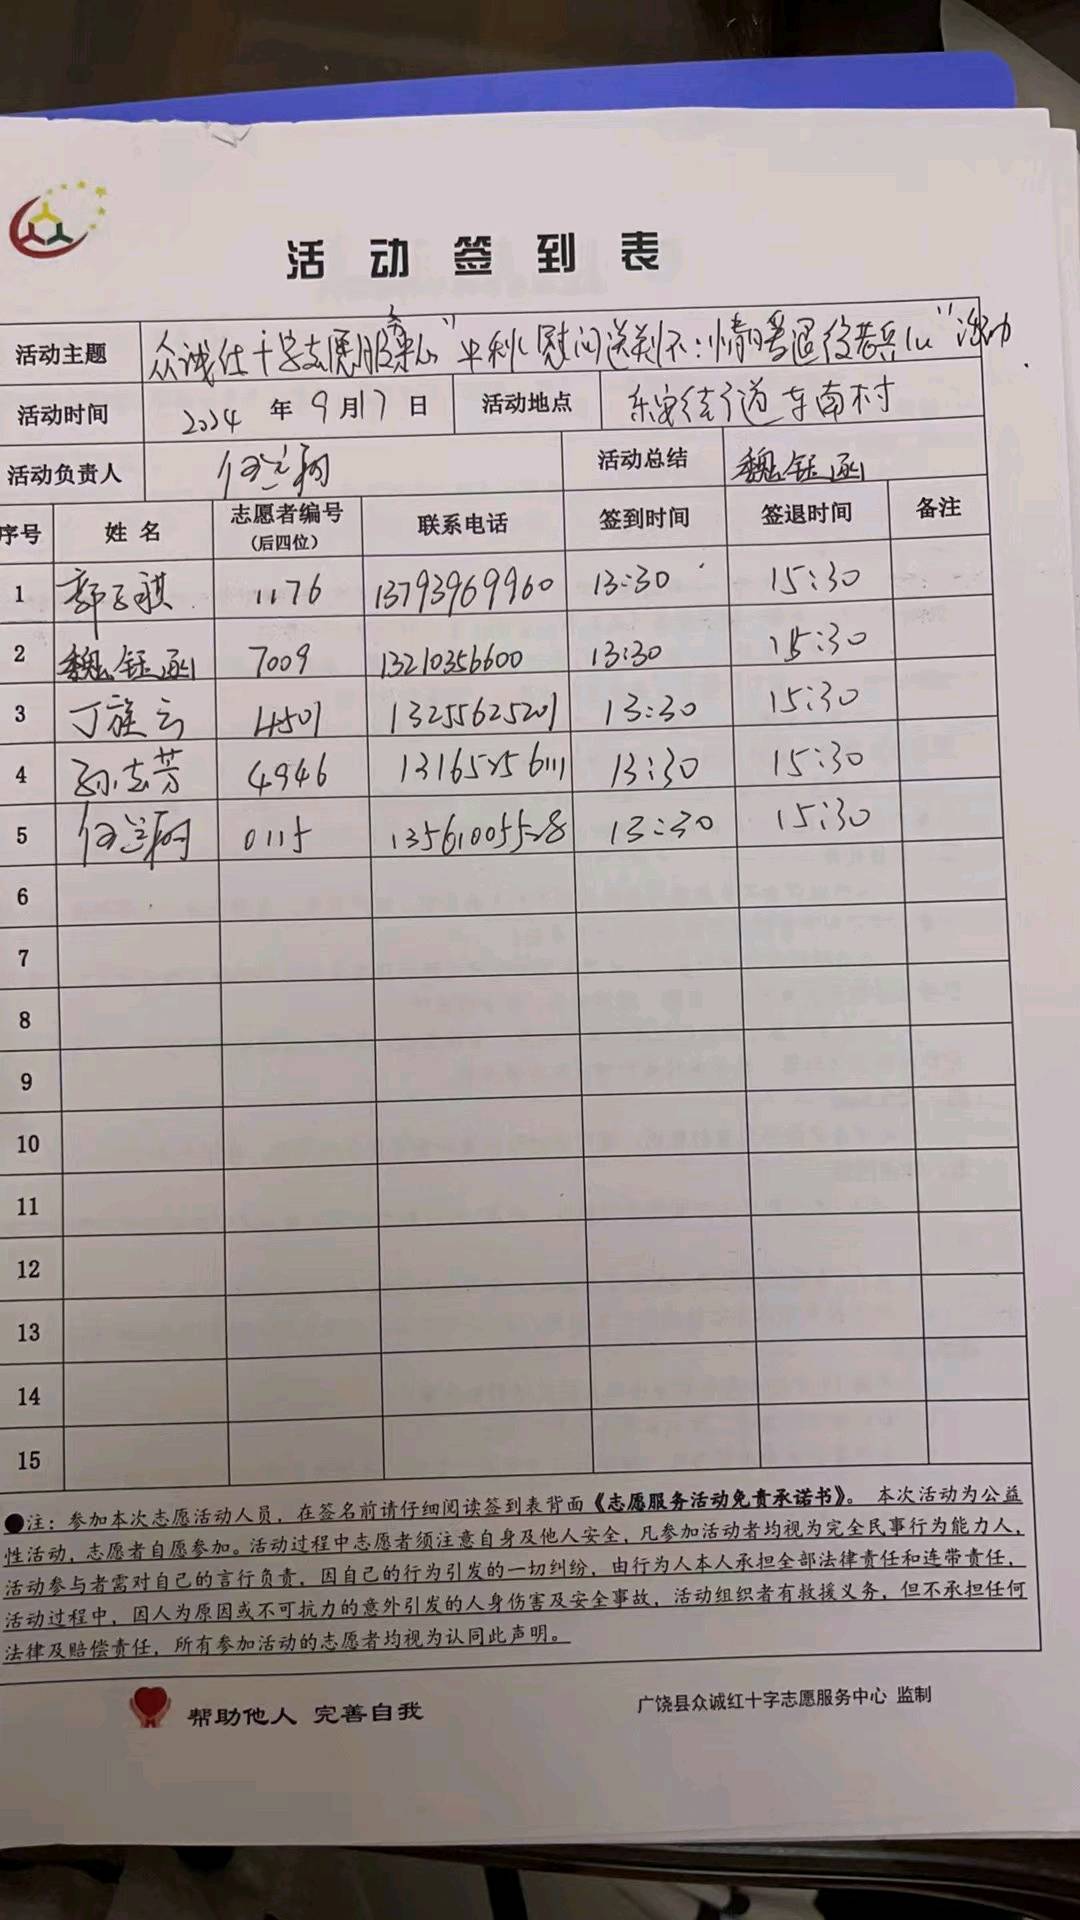 活动签到表
活动主题 众诚红十字志愿服务中心"中秋慰问送关怀:情暖退役老兵心"活动
活动时间 2024年9月17日 活动地点 街道东南村
活动负责人 活动总结 魏钰函
序号 姓名 志愿者编号(后四位) 联系电话 签到时间 签退时间 备注
1 郭子祺 1176 13793969960 13:30 15:30
2 魏钰函 7009 13210356600 13:30 15:30
3 丁 云 4501 13255625201 13:30 15:30
4 孙志芳 4946 13:30 15:30
5 0115 13561005528 13:30 15:30
6
7
8
9
10
11
12
13
14
15
●注:参加本次志愿活动人员,在签名前请仔细阅读签到表背面《志愿服务活动免责承诺书》。本次活动为公益
性活动,志愿者自愿参加。活动过程中志愿者须注意自身及他人安全,凡参加活动者均视为完全民事行为能力人,
活动参与者需对自己的言行负责,因自己的行为引发的一切纠纷,由行为人本人承担全部法律责任和连带责任,
活动过程中,因人为原因或不可抗力的意外引发的人身伤害及安全事故,活动组织者有救援义务,但不承担任何
法律及赔偿责任,所有参加活动的志愿者均视为认同此声明。
帮助他人 完善自我 广饶县众诚红十字志愿服务中心 监制